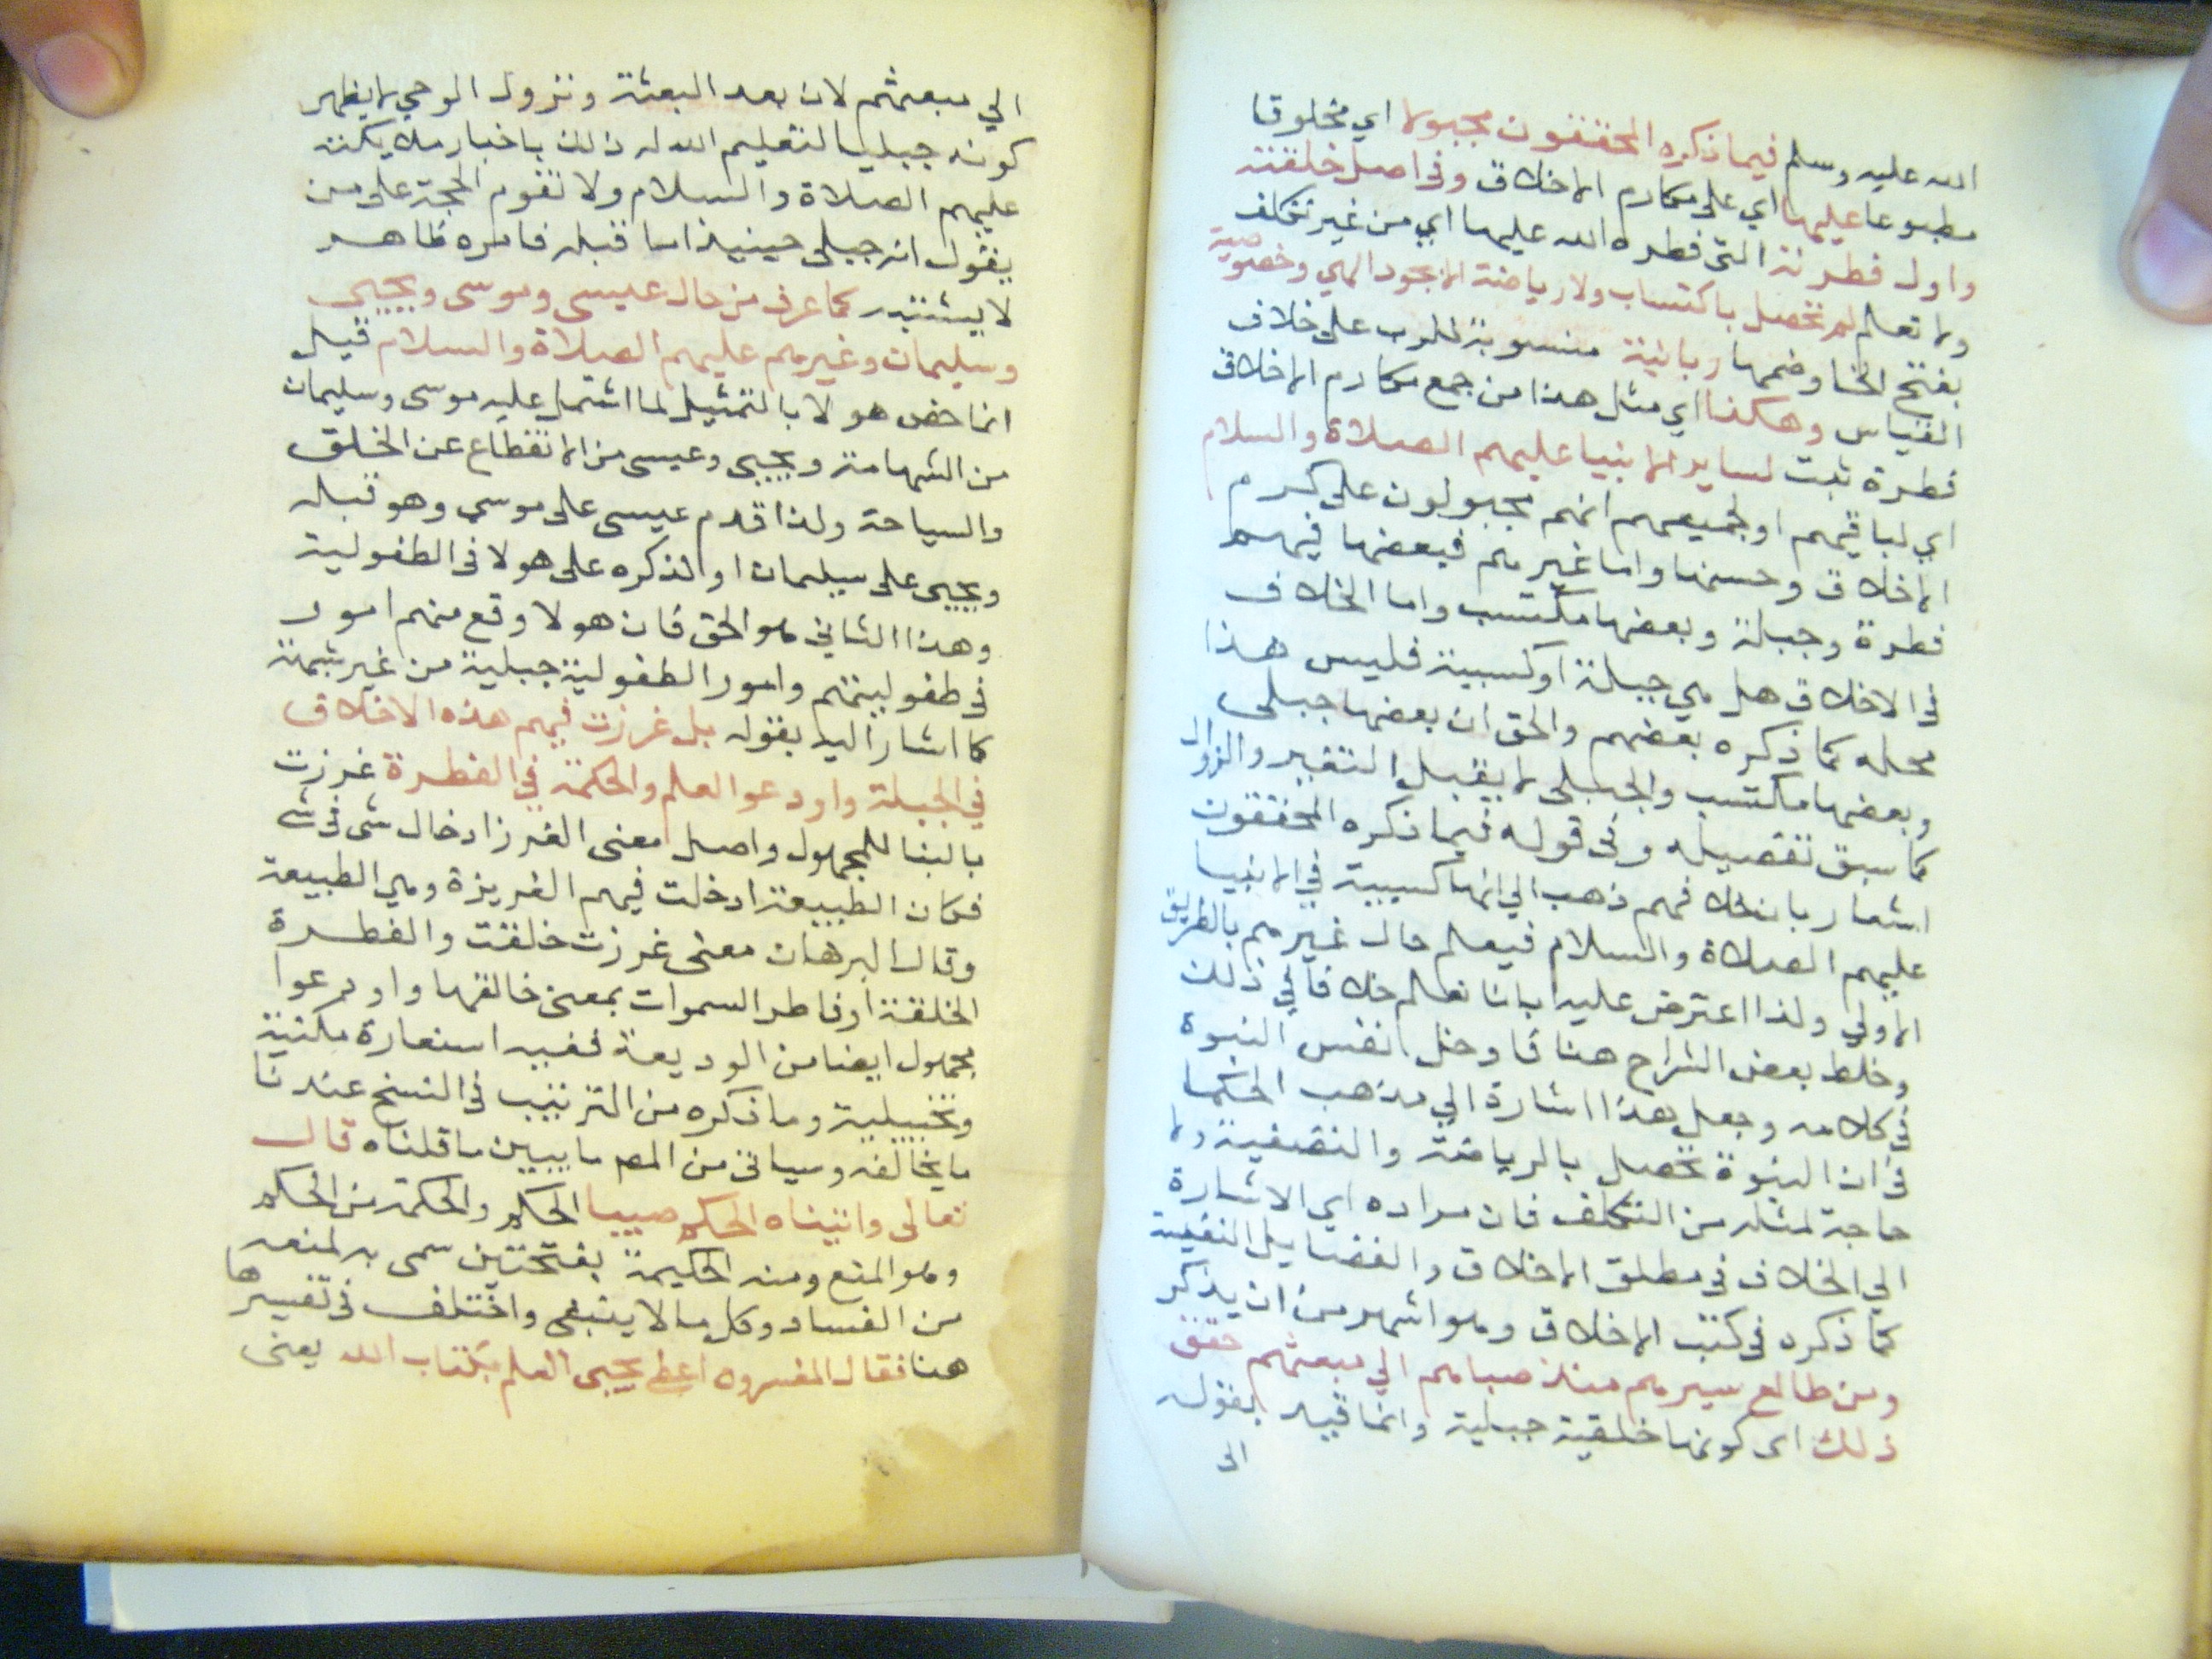 الله عليه وسلم فيما ذكره المحققون مجبولا اي مخلوقا
مطبوعا عليها اي على مكارم الاخلاق وفى اصل خلقته
واول فطرته التى فطره الله عليها اي من غير تكلف
ولا تعلم لم تحصل باكتساب ولا رياضة الا بجود الهي وخصوصية
بفتح الخا وضمها ربانية منسوبة للرب على خلاف
القياس وهكذا اي مثل هذا من جمع مكارم الاخلاق
فطرة ثبت لساير الانبيا عليهم الصلاة والسلام
اي لباقيهم او لجميعهم انهم مجبولون على كرم
الاخلاق وحسنها واما غيرهم فبعضها فيهم
فطرة وجبلة وبعضها مكتسب واما الخلاف
فى الاخلاق هل هي جبلة او كسبية فليس هذا
محله كما ذكره بعضهم والحق ان بعضها جبلى
وبعضها مكتسب والجبلى لا يقبل التغيير والزوال
كما سبق تفصيله وفى قوله فيما ذكره المحققون
اشعار بان خلافهم ذهب الي انها كسبية في الانبيا
عليهم الصلاة والسلام فيعلم حال غيرهم بالطريق
الاولي ولذا اعترض عليه بانا نعلم خلافا في ذلك
وخلط بعض الشراح هنا فادخل نفس النبوة
في كلامه وجعل هذا اشارة الي مذهب الحكما
فى ان النبوة تحصل بالرياضة والتصفية ولا
حاجة لمثله من التكلف فان مراده اي الاشارة
الي الخلاف فى مطلق الاخلاق والفضايل النفسية
كما ذكره فى كتب الاخلاق وهو اشهر من ان يذكر
ومن طالع سيرهم منذ صباهم الي مبعثهم حقق
ذلك اى كونها خلقية جبلية وانما قيد بقوله
الى
الي مبعثهم لان بعد البعثة ونزول الوحي لا يظهر
كونه جبليا لتعليم الله له ذلك باخبار ملايكته
عليهم الصلاة والسلام ولا تقوم الحجة على من
يقول انه جبلى حينيذ اما قبله فامره ظاهر
لا يشتبه كما عرف من حال عيسى وموسى ويحيى
وسليمان وغيرهم عليهم الصلاة والسلام قيل
انما خص هولا بالتمثيل لما اشتمل عليه موسى وسليمان
من الشهامة ويحيى وعيسى من الانقطاع عن الخلق
والسياحة ولذا قدم عيسى على موسي وهو قبله
ويحيى على سليمان او لذكره على هولا فى الطفولية
وهذا الثاني هو الحق فان هولا وقع منهم امور
فى طفوليتهم وامور الطفولية جبلية من غير شبهة
كما اشار اليه بقوله بل غرزت فيهم هذه الاخلاق
في الجبلة واودعوا العلم والحكمة في الفطرة غرزت
بالبنا للمجهول واصل معنى الغرز ادخال شى فى شى
فكان الطبيعة ادخلت فيهم الغريزة وهي الطبيعة
وقال البرهان معنى غرزت خلقت والفطرة
الخلقة او فاطر السموات بمعنى خالقها واودعوا
مجهول ايضا من الوديعة ففيه استعارة مكنية
وتخييلية وما ذكره من الترتيب فى النسخ عندنا
ما يخالفه وسياتى من المص ما يبين ما قلناه قال
تعالى واتيناه الحكم صبيا الحكم والحكمة من الحكم
وهو المنع ومنه الحكيمة بفتحتين سمى به لمنعه
من الفساد وكل ما لا ينبغى واختلف فى تفسيرها
هنا فقال المفسرون اعطى يحيى العلم بكتاب الله يعنى